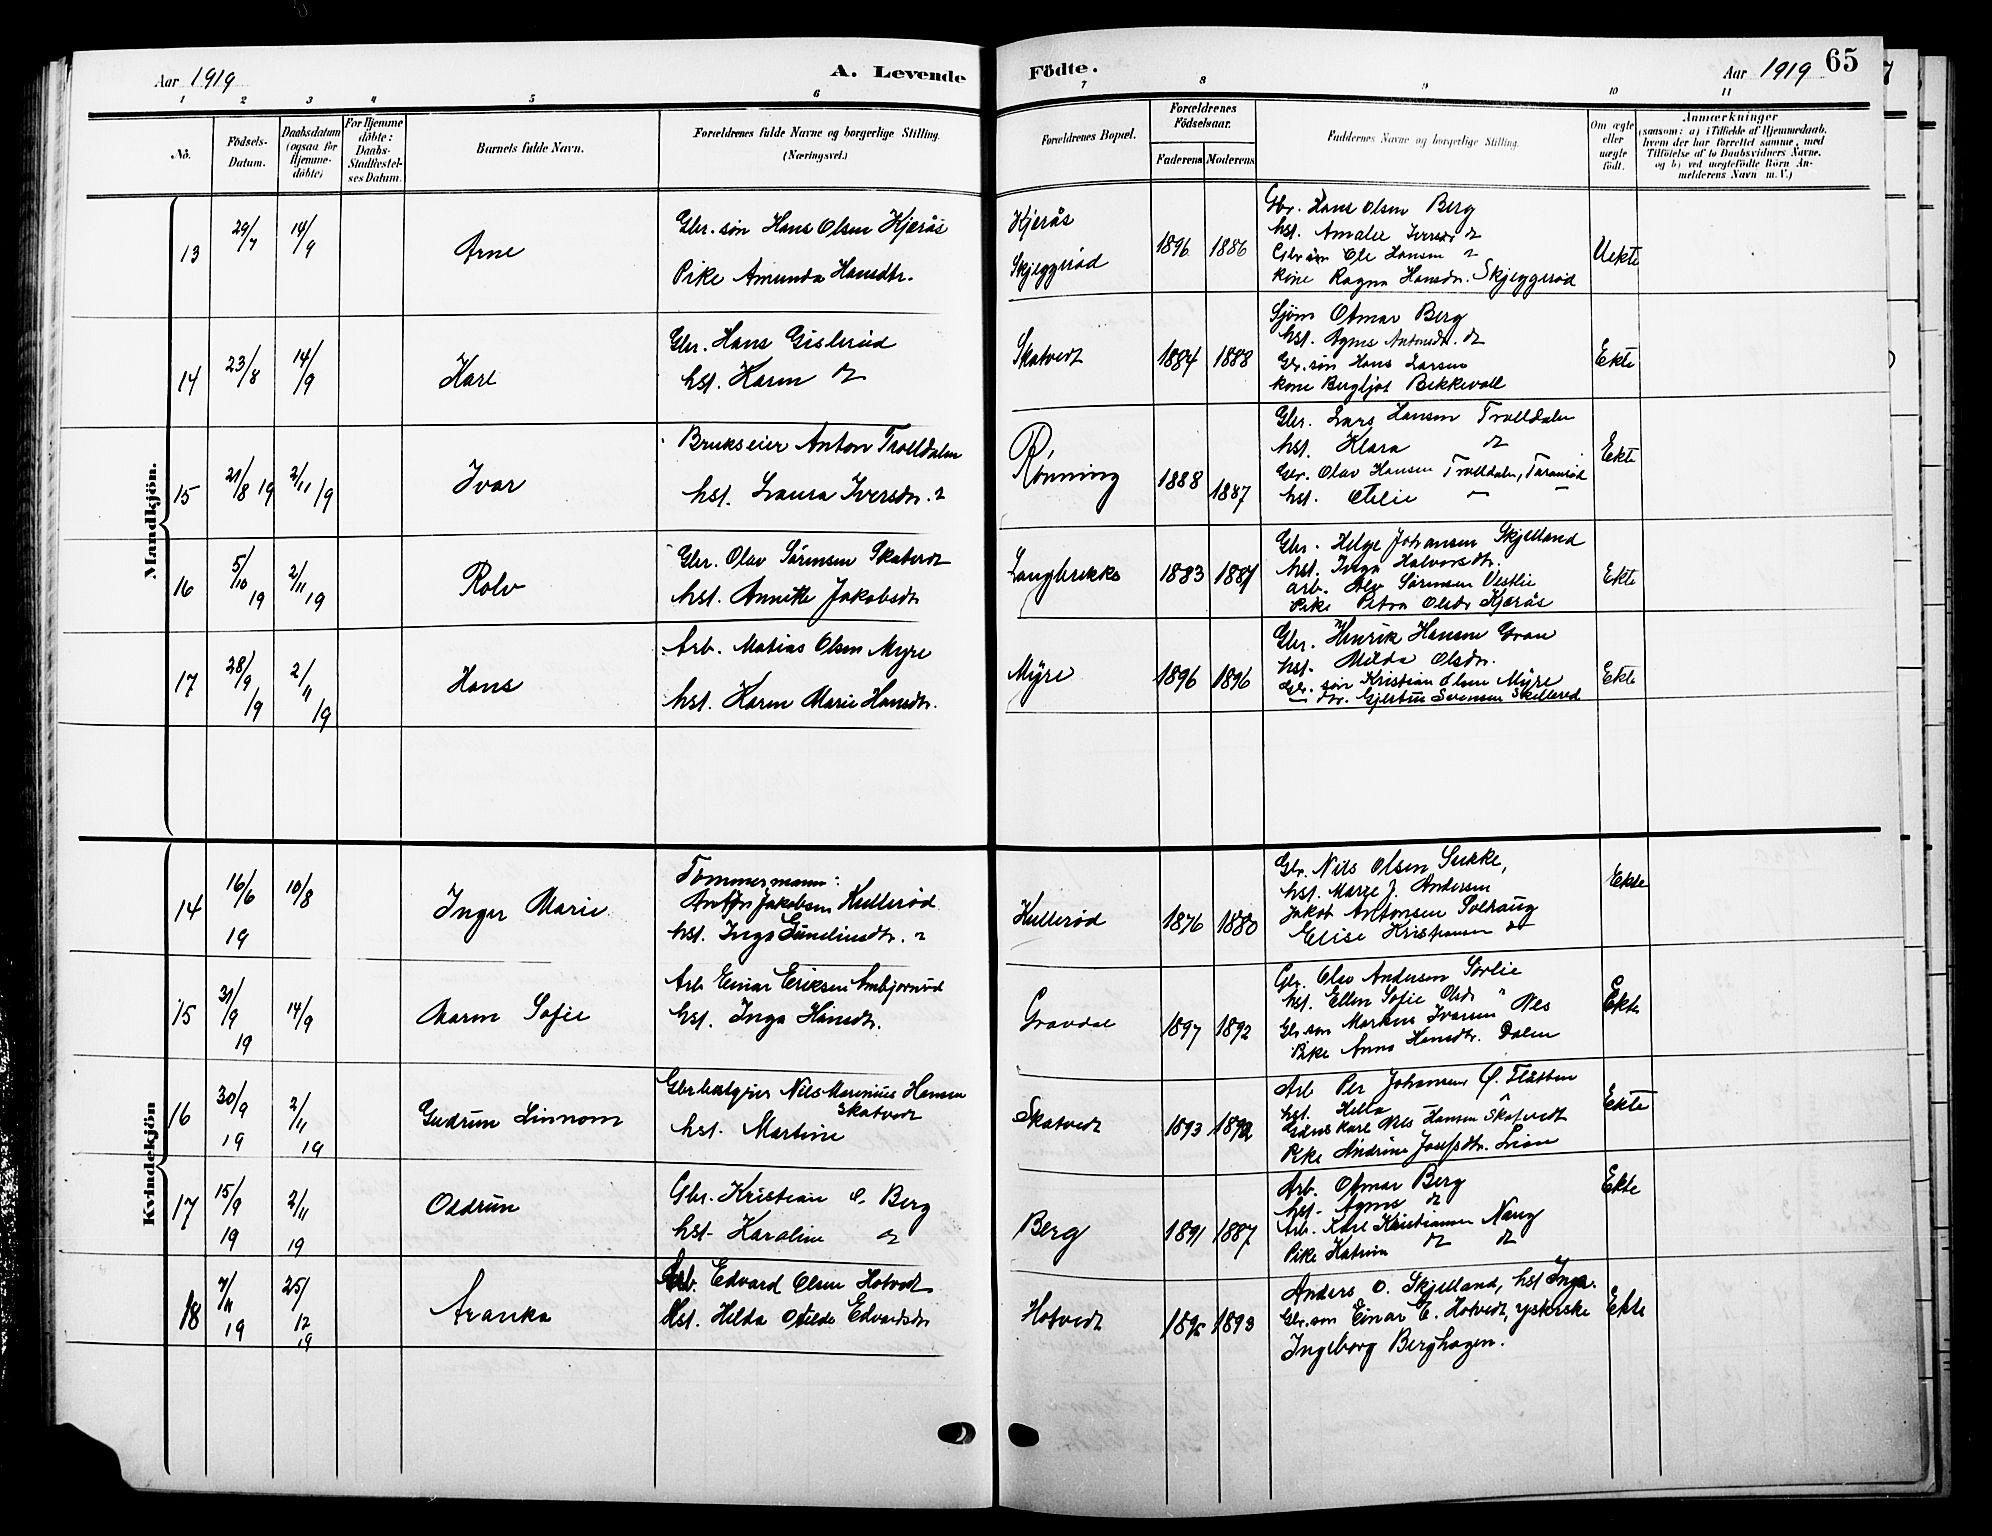 Aar 1919
A. Levende
Födte.
Aar 1919
65
1 2 3 4 5 6 7 8 9 10 11
No.
Födsels-
Datum.
Daabsdatum
(ogsaa for
Hjemme-
döbte)
For Hjemme
döbte:
Daabs-
Stadfestel-
ses Datum.
Barnets fulde Navn.
Forældrenes fulde Navne og borgerlige Stilling.
(Næringsvei.)
Forældrenes Bopæl.
Forældrenes
Födselsaar.
Faderens Moderens
Faddernes Navne og borgerlige Stilling.
Om ægte
eller
uægte
födt.
Anmærkninger
(saasom: a) i Tilfælde af Hjemmedaab,
hvem der har forrettet samme, med
Tilföielse af to Daabsvidners Navne.
og b) ved uægtefödte Börn An-
melderens Navn m. V.)
Mandkjön.
13
29/7
14/9
Arne
Gbr. søn Hans Olsen Kjærås
Pike Amunda Hansdtr.
Kjerås
Skjeggerød
1896 1886
Gbr. Hans Olsen Berg
hst. Amalie Iversdr
Gbr søn Ole Hansen
kone Ragna Hansdr. Skjeggerød
Uekte
14
23/8
14/9
Kare
Gbr. Hans Gislerud
hst. Karen do
Skatvedt
1884 1888
Sjøm Otmar Berg
hst. Agnes Antonsdr. do
Gbr. søn Hans Larsen
kone Bergljot Bekkevoll
Ekte
15
21/8 19
2/11 19
Ivar
Brukseier Anton Trolldalen
hst. Laura Iversdr.
Rønning
1888 1887
Gbr. Lars Hansen Trolldalen
hst. Klara do
Gbr. Olav Hansen Trolldalen,
hst. Otelie
Ekte
16
5/10 19
2/11 19
Rolv
Gbr. Olav Sørensen Skatvedt
hst. Annette Jakobsdtr
Langbrekke
1883 1887
Gbr. Helge Johansen Skjelland
hst. Inga Halvorsdtr.
arb. Olav Sørensen Vestlie
Pike Petra Olsdr Kjærås
Ekte
17
28/9 19
2/11 19
Hans
Arb. Matias Olsen Myre
hst. Karen Marie Hansdtr.
Myre
1896 1896
Gbr. Henrik Hansen Gran
hst. Milda Olsdr.
Gbr. søn Kristian Olsen Myre
dtr. Gjertine Svensen Skillered
Ekte
Kvindekjön
14
16/6 19
10/8
Inger Marie
Tømmermann:
Anton Jakobsen Kullerød
hst. Inga
Kullerød
1876 1880
Gbr. Nils Olsen Sukke,
hst. Marie J. Andersen
Jakob Antonsen Solhaug
Elise Kristiansen do
Ekte
15
31/9 19
14/9
Maren Sofie
Arb Einar Eriksen Ambjørnrød
hst. Inga Hansdtr.
Gravdal
1897 1892
Gbr. Olav Andersen Sørlie
hst. Ellen Sofie Olsdr "
Gbr søn Markus Ivarsen Nes
Pike Anna Hansdtr. Dalen
Ekte
16
30/9 19
2/11 19
Gudrun Linnom
Gbr bestyrer Nils Marenius Hansen
Skatvedt
hst. Martine
Skatvedt
1893 1892
Arb Per Johansen Ø. Flåtten
hst. Hella
Karl Nils Hansen Skatvedt
Pike Andrine Josefsdtr. Lian
Ekte
17
15/9 19
2/11 19
Oddrun
Gbr. Kristian O. Berg
hst. Karoline do
Berg
1891 1887
Arb. Otmar Berg
hst. Agnes do
Arb. Karl Kristiansen Narug
Pike Katrin do do
Ekte
18
7/11 19
25/12 19
Aranka
Arb. Edvard Olsen Hotvedt
Hst. Hilda Otilde Edvardsdtr
Hotvedt
1895 1893
Anders O. Skjelland, hst Inga.
Gbr. søn Einar E. Hotvedt, ysterske
Ingeborg Berghagen.
Ekte